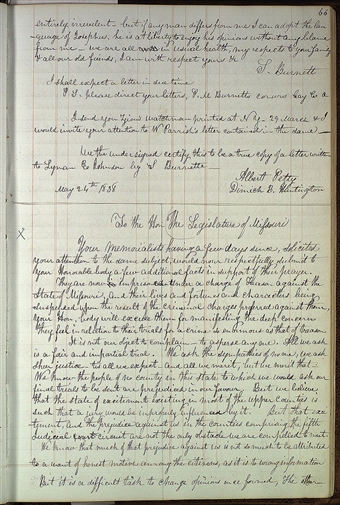 66
entirely irrevelent - but if any man differs from me I can adopt the lan
guage of Josephus, he is at liberty to enjoy his opinions without any blame
from me - we are all in usual health, my respect to your family
& all our old friends, I am with respect yours &c
S. Burnett
I shall expect a letter in due time
P.S. please direct your letters, P. M Burnetts corners Gay Co
I send you Zions watchman printed at N Y - 29 March & I
would invite your attention to W Parrish's letter contained in the same -
We the undersigned certify this to be a true copy of a letter written
to Lyman E Johnson by S Burnette
Albert Petty
May 24th 1838 Dimick B. Huntington
To the Hon. The Legislature of Missouri
X
Your Memorialists having a few days since, solicited
your attention to the same subject, would now respectfully submit to
Your Honorable body a few additional facts in support of their prayer.
They are now imprisoned under a charge of Treason against the
State of Missouri, and their lives and fortunes and characters, being
suspended upon the result of the criminal charges preferred against them,
your Hon. body will excuse them for manifesting the deep concern
they feel in relation to their trials for a crime so enormous as that of treason.
It is not our object to complain - to asperse any one. All we ask
is a fair and impartial trial. We ask the sympathies of none, we ask
sheer justice - tis all we expect - and all we merit, but we merit that -
We know the people of no county in this State to which we would ask our
final trials to be sent are prejudiced in our favour. But we believe
that the state of excitement existing in most of the upper counties is
such that a jury would be improperly influenced by it. But that exci
tement, and the prejudice against us in the counties comprising the fifth
Judicial circuit are not the only obstacle we are compelled to meet.
We know that much of that prejudice against us is not so much to be attributed
to a want of honest motives among the citizens, as it is to wrong information
But it is a difficult task to change opinions once formed, The other